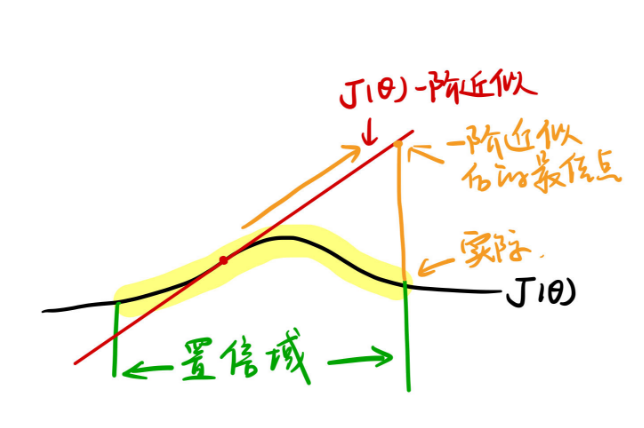 J(θ)一阶近似
一阶近似
后的最佳点
实际.
J(θ)
置信域